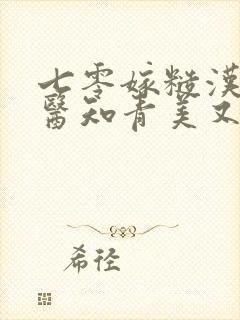 七零嫁糙漢
醫知青美又
希徑